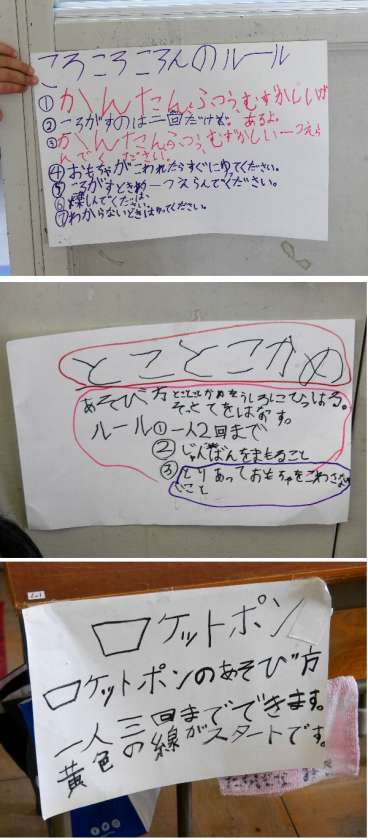 ころころころんのルール
①かんたん、ふつう、むずかしいが
②ころがすのは二回だけね。あるよ。
③かんたん、ふつう、むずかしい一つえら
んでください。
④おもちゃがこわれたらすぐにゆってください。
⑤ころがすときめ一つえらんでください。
⑥
ください。
⑦わからないときはゆってください。
とことこかめ
あそび方とことこかめをうしろにひっぱる。
そっとてをはなす。
ルール①一人2回まで
②じゅんばんをまもること
③とりあっておもちゃをこわさない
こと
ロケットポン
ロケットポンのあそび方
一人三回までできます。
黄色の線がスタートです。